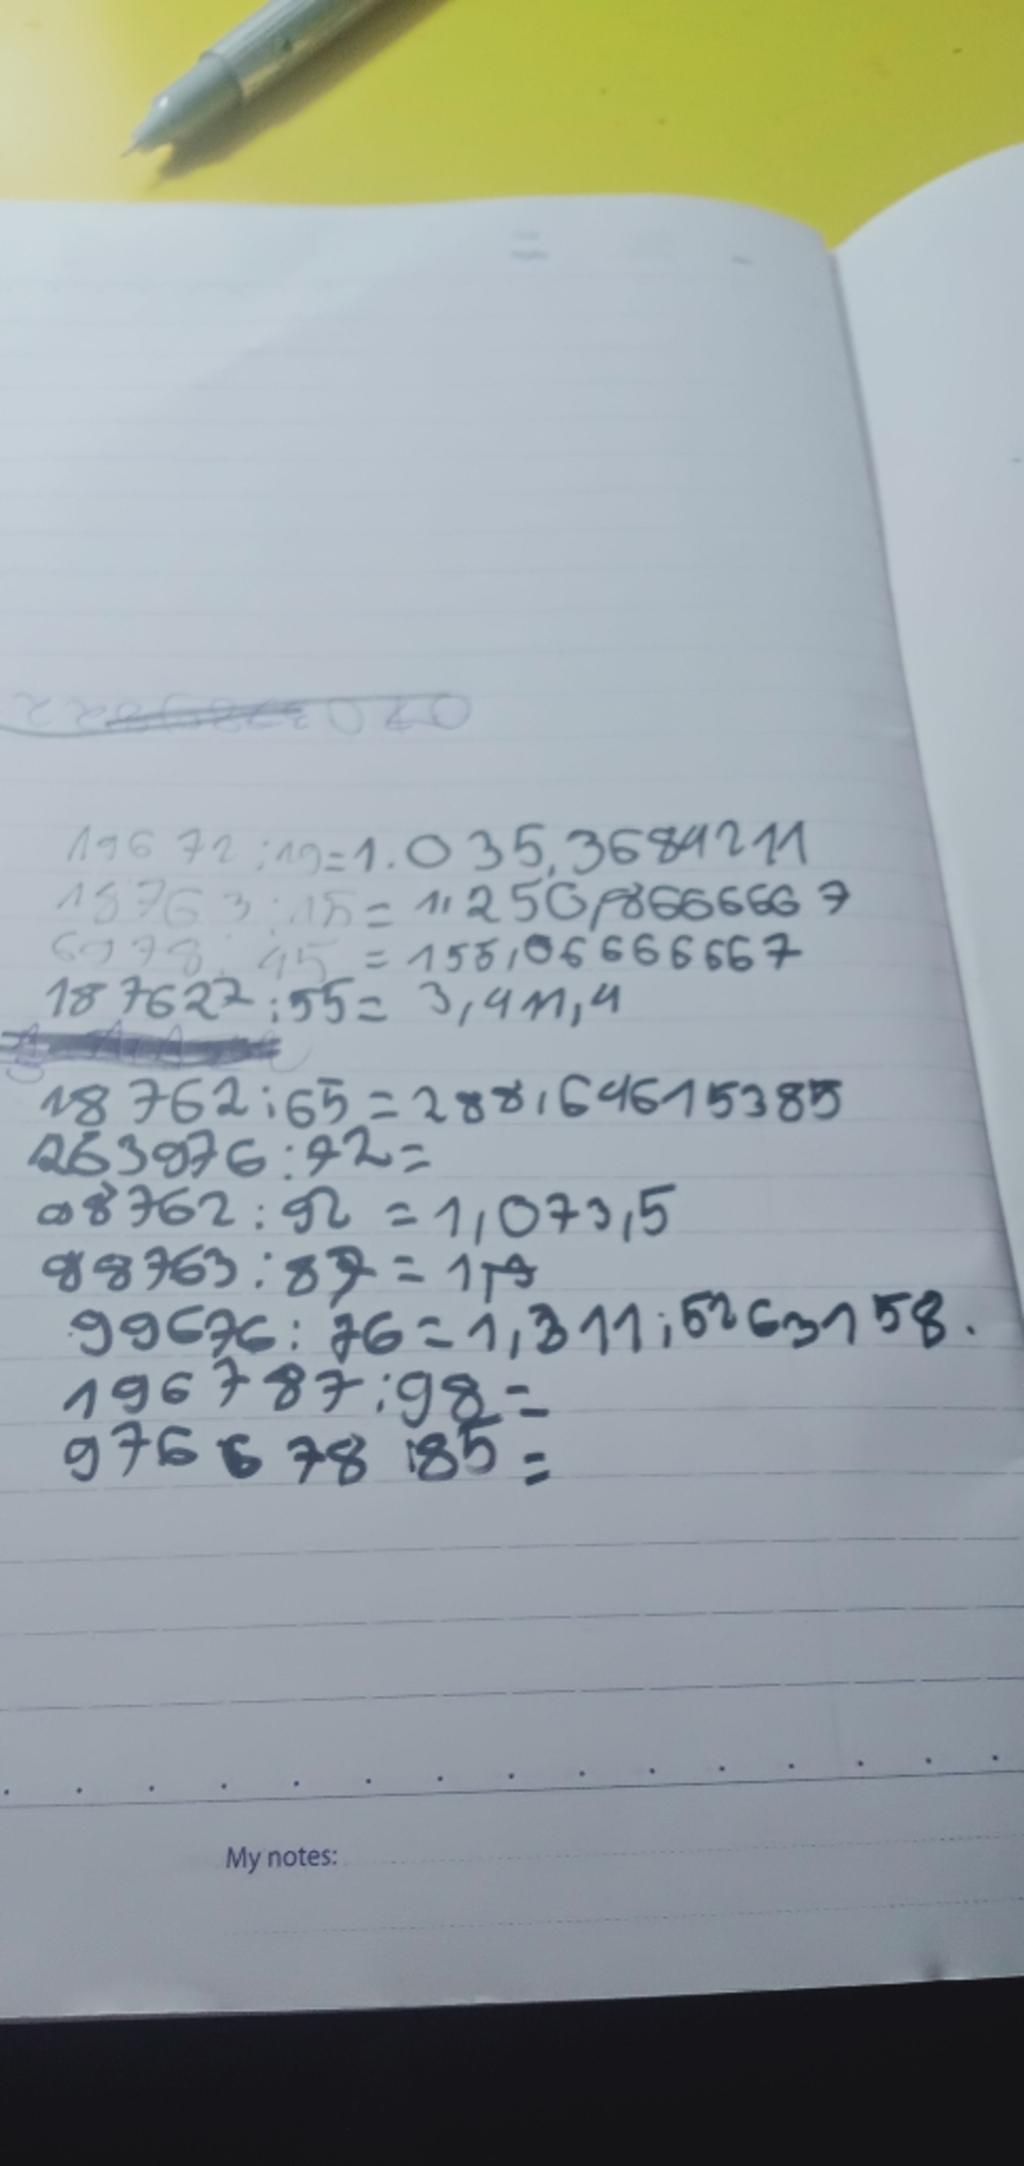 19672:19=1.035,3684211
18763:15=1,250,866666 7
6978:45=155,06666667
187627:55=3,411,4
18762:65=288,64615385
263976:72=
98762:92=1,073,5
98763:87=1,
99676:76=1,311;5263158.
196787:98=
976678:85=
My notes: